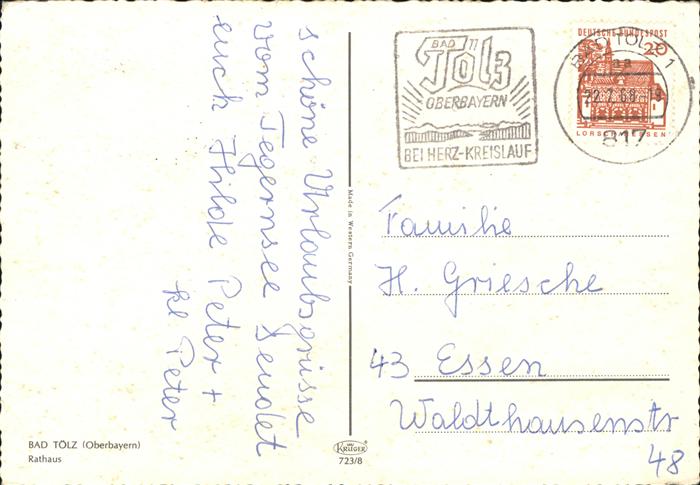 schöne Urlaubsgrüsse
vom Tegernsee sendet
euch Hilde Peter +
kl Peter
BAD TÖLZ (Oberbayern)
Rathaus
Made in Western Germany
KRÜGER
723/8
BAD
Tölz
OBERBAYERN
BEI HERZ-KREISLAUF
DEUTSCHE BUNDESPOST
20
LORSCH/HESSEN
BAD TÖLZ 1
22.7.68-19
817
Familie
H. Griesche
43 Essen
Waldthausenstr
48